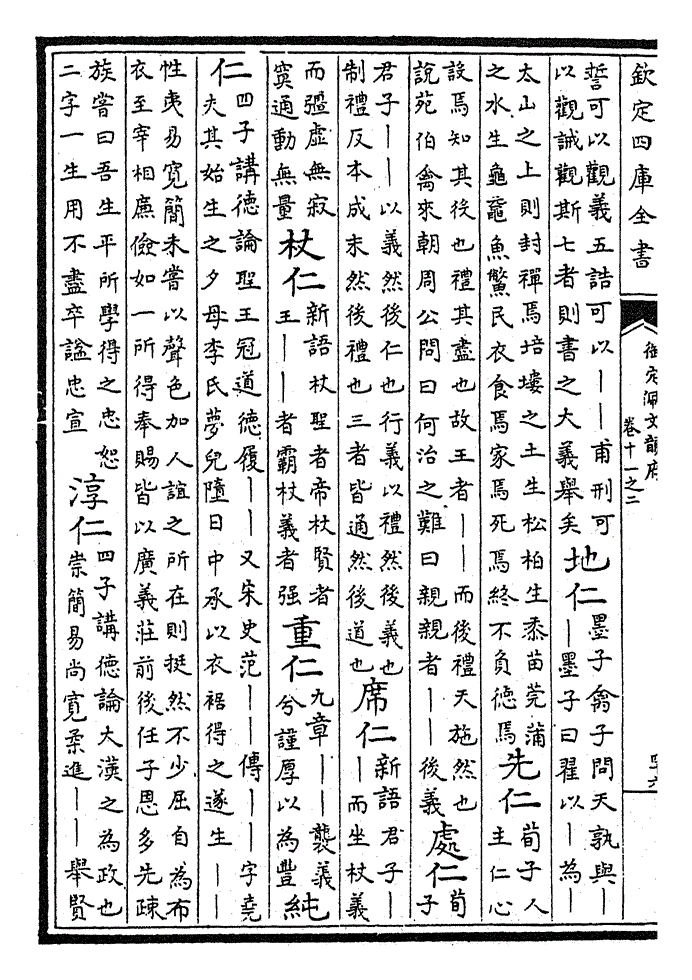 欽定四庫全書
御定佩文韻府
卷十一之二
四六
誓可以觀義五誥可以——甫刑可
以觀誡觀斯七者則書之大義舉矣
地仁
墨子禽子問天孰與——
—墨子曰翟以—為—
太山之上則封禪焉培塿之土生松柏生黍苗莞蒲
之水生龜鼉魚鱉民衣食焉家焉死焉終不負德焉
先仁
荀子人
主仁心
設焉知其後也禮其盡也故王者——而後禮天施然也
說苑伯禽來朝周公問曰何治之難曰親親者——後義
處仁
荀
子
君子——以義然後仁也行義以禮然後義也
制禮反本成末然後禮也三者皆通然後道也
席仁
新語君子—
—而坐杖義
而彊虛無寂
寞通動無量
杖仁
新語杖聖者帝杖賢者
王——者霸杖義者强
重仁
九章——襲義
兮謹厚以為豐
純
仁
四子講德論聖王冠道德履——又宋史范——傳——字堯
夫其始生之夕母李氏夢兒墮日中承以衣裾得之遂生——
性夷易寛簡未嘗以聲色加人誼之所在則挺然不少屈自為布
衣至宰相廉儉如一所得奉賜皆以廣義莊前後任子恩多先疎
族嘗曰吾生平所學得之忠恕
二字一生用不盡卒諡忠宣
淳仁
四子講德論大漢之為政也
崇簡易尚寛柔進——舉賢